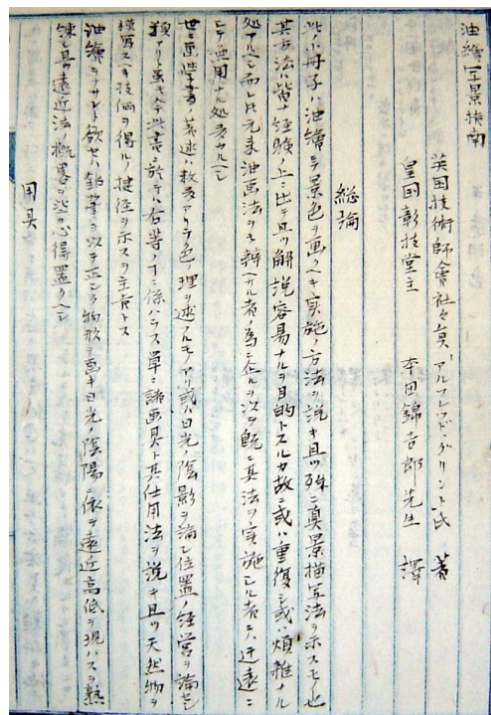 油繪真景指南
英国技術師會社々員 アルフレッド・グリント氏 著
皇国彰技堂主 本田錦吉郎先生 譯
総論
此小冊子ハ油繪ニテ景色ヲ画クヘキ実施ノ方法ヲ説キ且ツ殊ニ真景描写法ヲ示スモノ也
其方法ハ皆ナ経験ノ上ニ出テ且ツ解説容易ナルヲ目的トスルカ故ニ或ハ重復シ或ハ煩雑ナル
処アルヘシ而シ𪜈元来油画法ヲモ辨ヘサル者ノ為ニ企ルヲ次テ既ニ其法ヲ実施シタル者ニハ迂遠ニ
シテ無用ナル処多カルヘシ
世ニ画学書ノ著述ハ枚多アリテ色ノ理ヲ述フルモノアリ或ハ日光ノ陰影ヲ論シ位置ノ経営ヲ論セシ
類アリト虽𪜈今此書ニ於テハ右等ノ𬼀ニ係ハラス単ニ諸画具ト其仕用法ヲ説キ且ツ天然物ヲ
模写スヘキ技倆ヲ得ルノ捷径ヲ示スヲ主旨トス
油繪ヲナサント欲セハ鉛筆ヲ以テ正シク物形ヲ画キ日光ノ陰陽ニ依テ遠近高低ヲ現ハスヲ熟
練シ且ツ遠近法ノ概畧ヲ必ス心得置クヘシ
用具